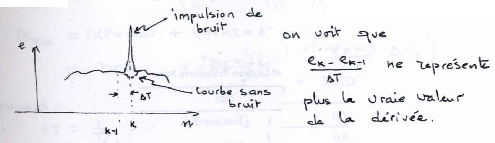 impulsion de
bruit
e
ΔT
Courbe sans
bruit
k-1
k
n
on voit que
e_k - e_k-1
ΔT
ne représente
plus la vraie valeur
de la dérivée.